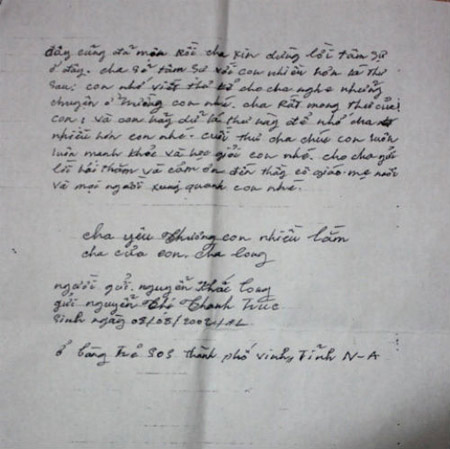 đây cũng đã muộn rồi cha xin dừng lời tâm sự
ở đây. cha sẽ tâm sự với con nhiều hơn lá thư
sau. con nhớ viết thư kể cho cha nghe những
chuyện ở trường con nhé. cha rất mong thư của
con! và con hãy dữ lá thư này để nhớ cha
nhiều hơn con nhé. cuối thư cha chúc con luôn
luôn mạnh khỏe và học giỏi con nhé. cho cha gửi
lời hỏi thăm và cảm ơn đến thầy cô giáo mẹ nuôi
và mọi người xung quanh con nhé.
cha yêu thương con nhiều lắm
cha của con. cha Long
người gửi. nguyễn Khắc Long
gửi nguyễn Thị Thanh Trúc
sinh ngày 08/08/2002/AL
ở làng trẻ SOS thành phố vinh, Tĩnh N-A